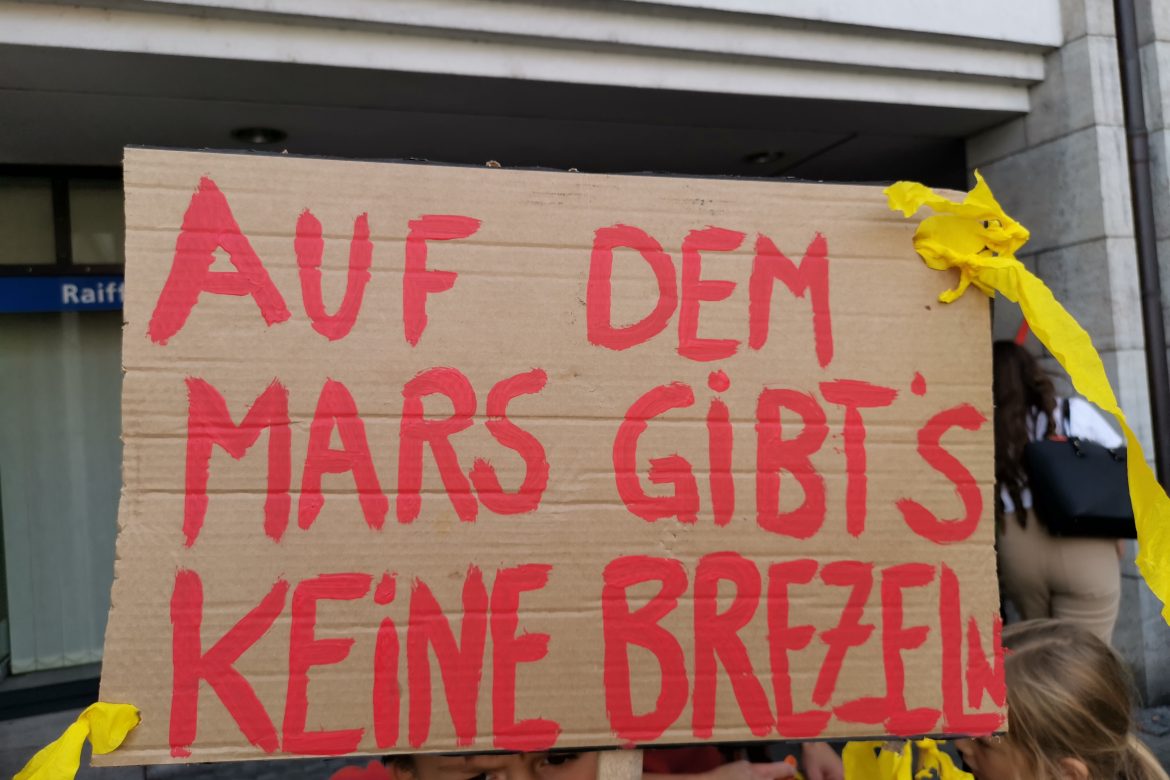 Raiff
AUF DEM
MARS GiBT'S
KEiNE BREZELN